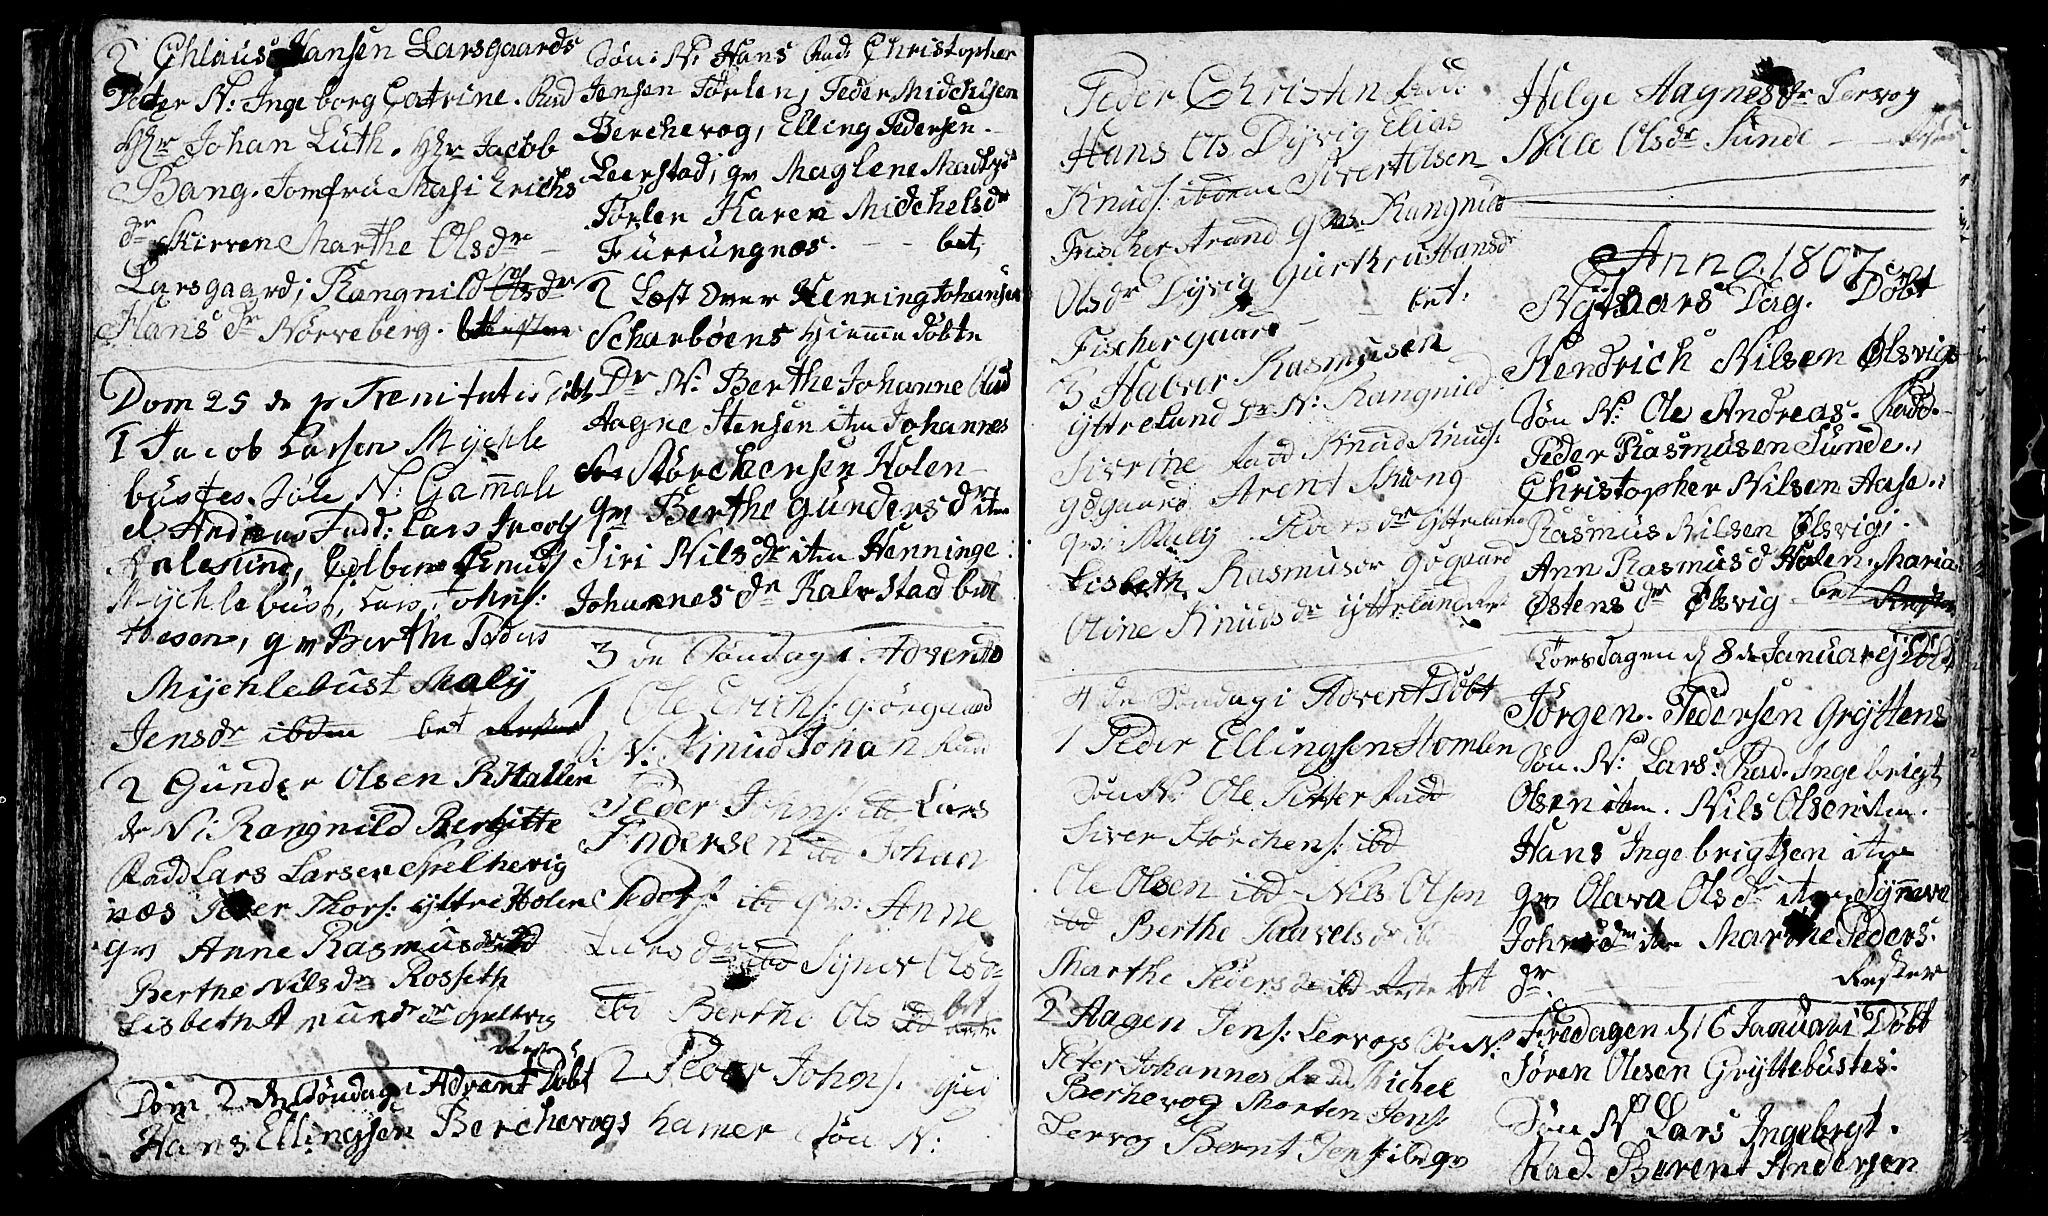 2 Chlaus Hansen Larsgaards
Dotter N: Ingeborg Catrine. Fad
Hr Johan Luth. Hr Jacob
Bang. Jomfru Masi Erichs
dr Skirven Marthe Olsdr
Larsgaard; Rangnild
Hansdr Nørveberg.
Dom 25 de p Trenitatis Døbt
1 Jacob Larsen Mychle
bustes. N: Gammal
el Andreas Fadd: Lars Jacobs
Knuds
Mychlebust, Lars Johns:
qv Berthe Peders
Mychlebust Maly
Jensdr ibdm bet
2 Gunder Olsen R:Hallen
dr N: Rangnild Bergitte
Fadd Lars Larsen Spelhevig
næs Peder Thors: yttre Holen
qv Anne Rasmusdr ibd
Berthe Nilsdr Rosseth
Lisbeth Amundsdr
Dom 2 den Søndag i Advent Døbt
Hans Ellingsen Berchevogs
Søn: N: Hans Fad: Christopher
Jensen Tørlen, Peder Midchelsen
Berchevog, Elling Pedersen
Leerstad; qv Maglene
Tørlen Karen Midchelsdr
Furrungnæs. - - bet,
2 Læst Over Henning Johansen
Scharbøens Hjemme døbte
Dr N: Berthe Johanne Fad
Aagne Stensen itm Johannes
Størchersen Holen
qv Berthe Gundersdr itm
Siri Nilsdr itm Henninge
Johannesdr Kalvstad bet
3 de Søndag i Advent
1 Ole Erichs: Giørgaard
S: N: Knud Johan Fad
Peder Johns: Lars
Andersen ibd Johan
Peders: ibd qv: Anne
Larsdr ibd Synev Olsdr
ibd Berthe Ols ibd bet
2 Peder Johns: Gud
hamer Søn N:
Peder Christen Fad
Hans Ols Dyvig Elias
Knuds: ibdm Sivert Olsen
Fischerstrand qv Rangnild
Olsdr Dyvig Guru Hansdr
Fischergaard - - bet:
3 Halvor Rasmusen
Ytreland Dr N: Rangnild
Sivrine Fadd Knud Knuds:
Gøgaard Arent
qv: Maly Ytreland
Lisbeth Rasmusdr Gøgaard
Oline Knudsdr Ytreland
4 de Søndag i Advent Døbt
1 Peder Ellingsen Homlen
Søn N: Ole Petter Fadd
Siver Størchens: ibd
Ole Olsen ibd Nils Olsen
ibd Berthe Paavelsdr ibd
Marthe Pedersdr ibd bet
2 Hagen Jens: Lervogs Søn N:
Peter Johannes Fadd Michel
Berhevog Morten Jens:
Lervog Bernt Jens: ibd qv
Helge Aagnesdr Lervog
Nille Olsdr Sunde
Anno 1807
Nytaars Dag. Døbt
Hendrich Nilsen Ølsvigs
Søn N: Ole Andreas. Fadd.
Peder Rasmusen Sunde,
Christopher Nilsen Aase.,
Rasmus Nilsen Ølsvig;
Ann Rasmusd Holen. Maria
Østensdr Ølsvig bet
Torsdagen d 8de Januarij Døbt
Jørgen. Pedersen Gryttens
Søn. N: Lars: Fad. Ingebrigt
Olsen itm. Nils Olsen itm.
Hans Ingebrigtsen itm
qv Olava Olsdr itm Synneva
Johnsdr itm Marthe Peders:
dr.
Fredagen d 16 Januari Døbt
Søren Olesen Gryttebustes:
Søn N Lars Ingebregt.
Fad. Berent Andersen